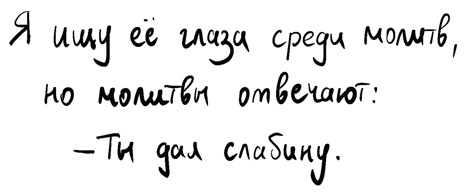 Я ищу её глаза среди молитв,
но молитвы отвечают:
– Ты дал слабину.